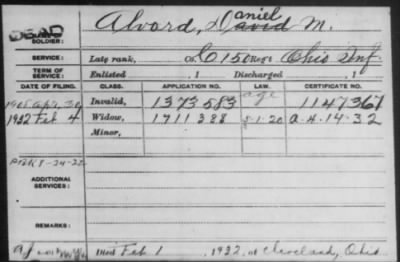 DEAD
Alvord, Daniel David M.
SOLDIER:
SERVICE: Late rank, Co. C 150 Reg't Ohio Inf.
TERM OF SERVICE: Enlisted , 1 Discharged , 1
DATE OF FILING. CLASS. APPLICATION NO. LAW. CERTIFICATE NO.
Apr, 30 Invalid, 1373583 age 1147367
1932 Feb 4 Widow, 1711388 5-1-20 A-4-14-32
Minor,
ADDITIONAL SERVICES:
REMARKS:
Died Feb 1 , 1932, at Cleveland, Ohio